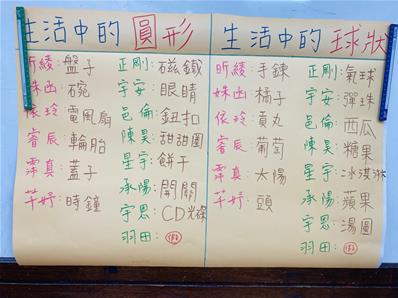 生活中的圓形
昕綾:盤子
姝函:碗
依玲:電風扇
睿辰:輪胎
霈真:蓋子
芊妤:時鐘
正剛:磁鐵
宇安:眼睛
邑倫:鈕扣
陳昊:甜甜圈
星宇:餅干
承陽:開關
宇恩:CD光碟
羽田:假
生活中的球狀
昕綾:手鍊
姝函:橘子
依玲:貢丸
睿辰:葡萄
霈真:太陽
芊妤:頭
正剛:氣球
宇安:彈珠
邑倫:西瓜
陳昊:糖果
星宇:冰淇淋
承陽:蘋果
宇恩:湯圓
羽田:假